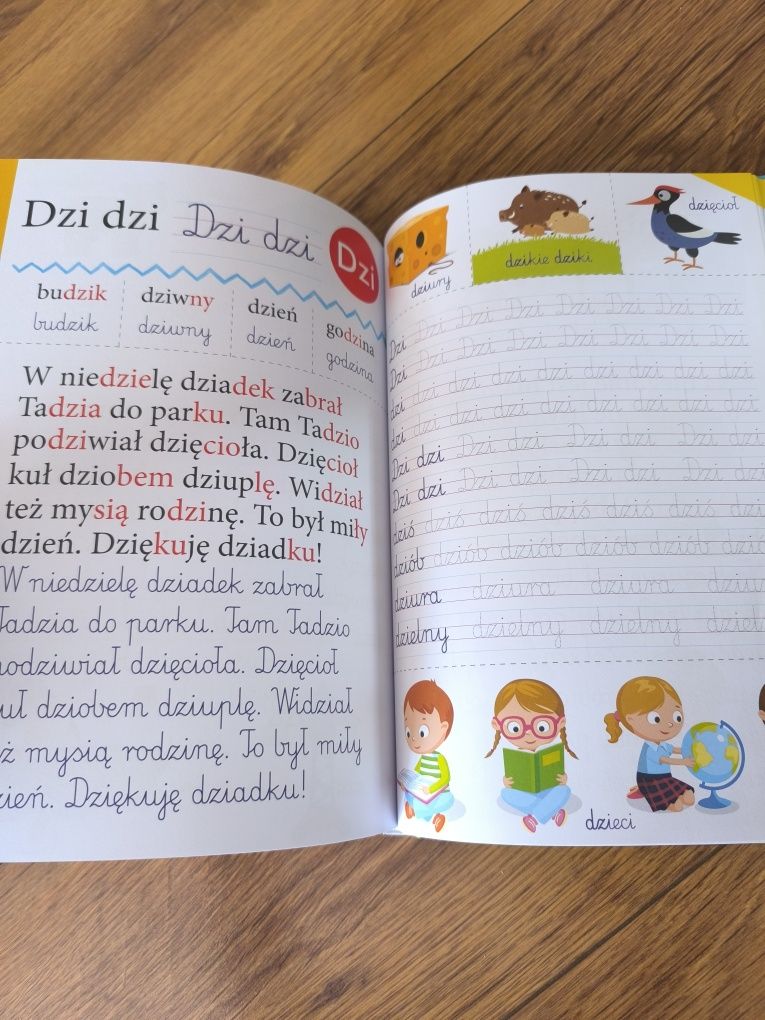 Dzi dzi Dzi dzi Dzi
budzik dziwny dzień godzina
budzik dziwny dzień godzina
W niedzielę dziadek zabrał
Tadzia do parku. Tam Tadzio
podziwiał dzięcioła. Dzięcioł
kuł dziobem dziuplę. Widział
też mysią rodzinę. To był miły
dzień. Dziękuję dziadku!
W niedzielę dziadek zabrał
Tadzia do parku. Tam Tadzio
podziwiał dzięcioła. Dzięcioł
uł dziobem dziuplę. Widział
ż mysią rodzinę. To był miły
zień. Dziękuję dziadku!
dziury dzikie dziki dzięcioł
Dzi Dzi Dzi Dzi Dzi Dzi Dzi Dzi
Dzi Dzi Dzi Dzi Dzi Dzi Dzi Dzi
dzi dzi dzi dzi dzi dzi dzi dzi dzi
dzi dzi dzi dzi dzi dzi dzi dzi dzi
Dzi dzi Dzi dzi Dzi dzi Dzi dzi
Dzi dzi Dzi dzi Dzi dzi Dzi dzi
dziś dziś dziś dziś dziś dziś dzi
dziób dziób dziób dziób dziób dzió
dziura dziura dziura dziu
dzielny dzielny dzielny dziel
dzieci